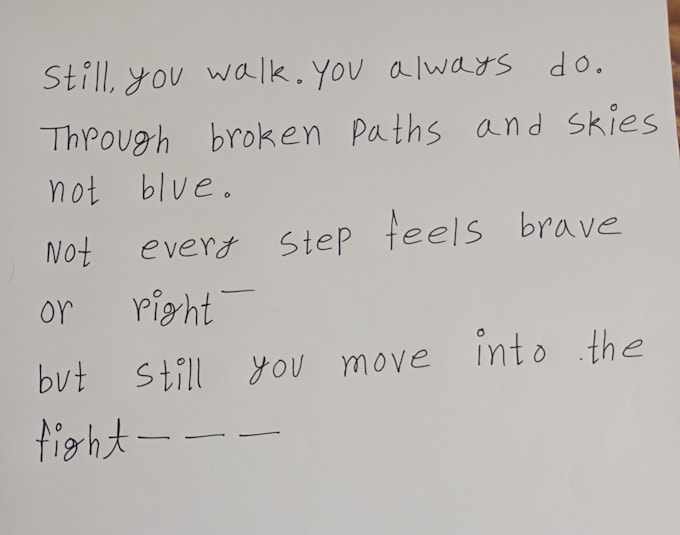 Still, you walk. You always do.
Through broken paths and skies
not blue.
Not every step feels brave
or right —
but still you move into the
fight — — —